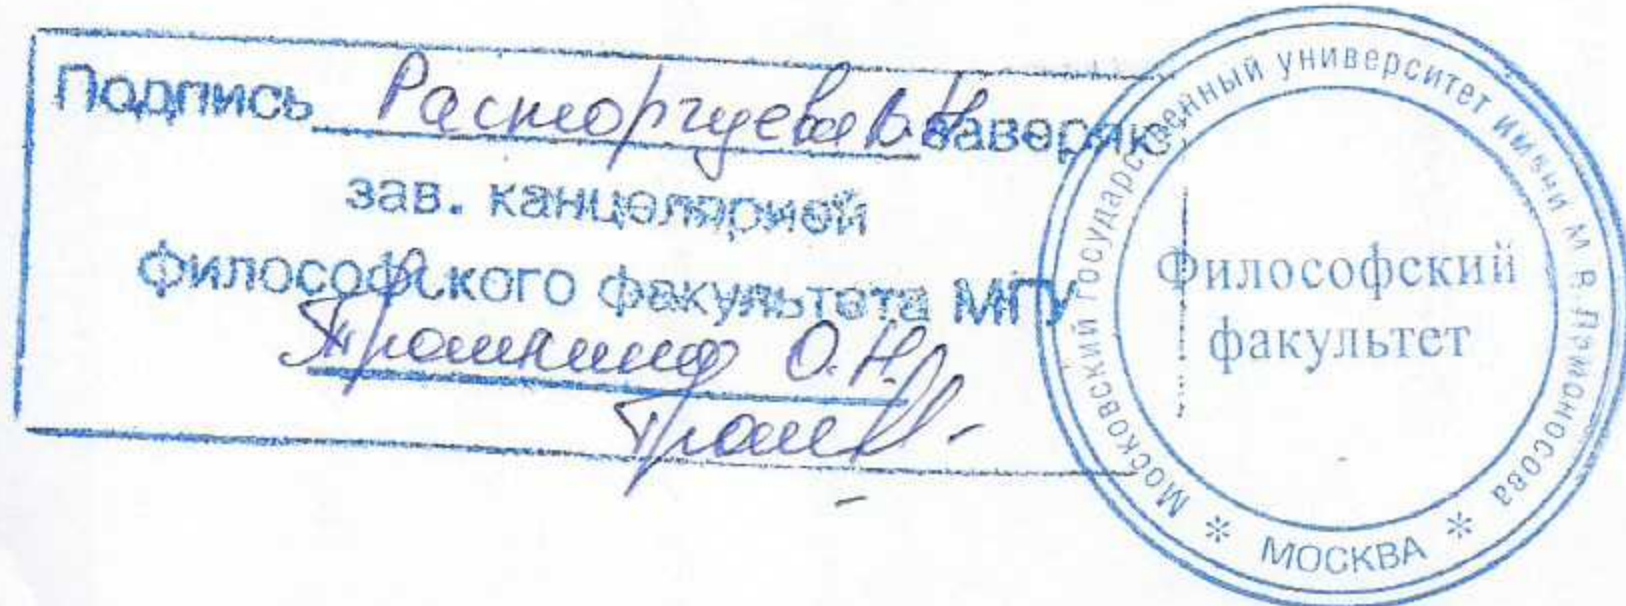 Подпись Расторгуева В.Н. заверяю
зав. канцелярией
философского факультета МГУ
Трошкина О.Н.
Московский государственный университет имени М.В.Ломоносова
Философский
факультет
* МОСКВА *